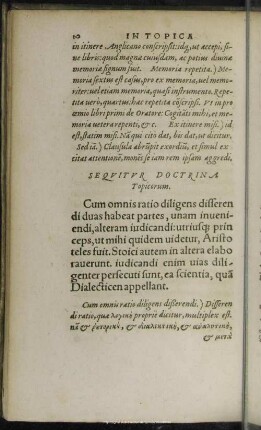 10 IN TOPICA
in itinere Anglicano conscripsit: idq, ut accepi, si-
ne libris: quod magnæ cuiusdam, ac potius diuinæ
memoriæ signum fuit. Memoria repetita.) Me-
moria sextus est casus, pro ex memoria, uel memo-
riter: uel etiam memoria, quasi instrumento. Repe-
tita uerò, quartus: hæc repetita cōscripsi. Vt in pro
œmio libri primi de Oratore: Cogitāti mihi, et me-
moria uetera repenti, &c. Ex itinere misi.) id
est, statim misi. Nā qui citò dat, bis dat, ut dicitur.
Sed iā.) Clausula abrūpit exordiū, et simul ex
citat attentionē, monēs se iam rem ipsam aggredi.
SEQVITVR DOCTRINA
Topicorum.
Cum omnis ratio diligens disseren
di duas habeat partes, unam inueni-
endi, alteram iudicandi: utriusq; prin
ceps, ut mihi quidem uidetur, Aristo
teles fuit. Stoici autem in altera elabo
rauerunt. iudicandi enim uias dili-
genter persecuti sunt, ea scientia, quā
Dialecticen appellant.
Cum omnis ratio diligens disserendi.) Disseren
di ratio, quæ λογικὴ propriè dicitur, multiplex est.
nā & ῥητορικὴ, & διαλεκτικὴ, &
& μετα